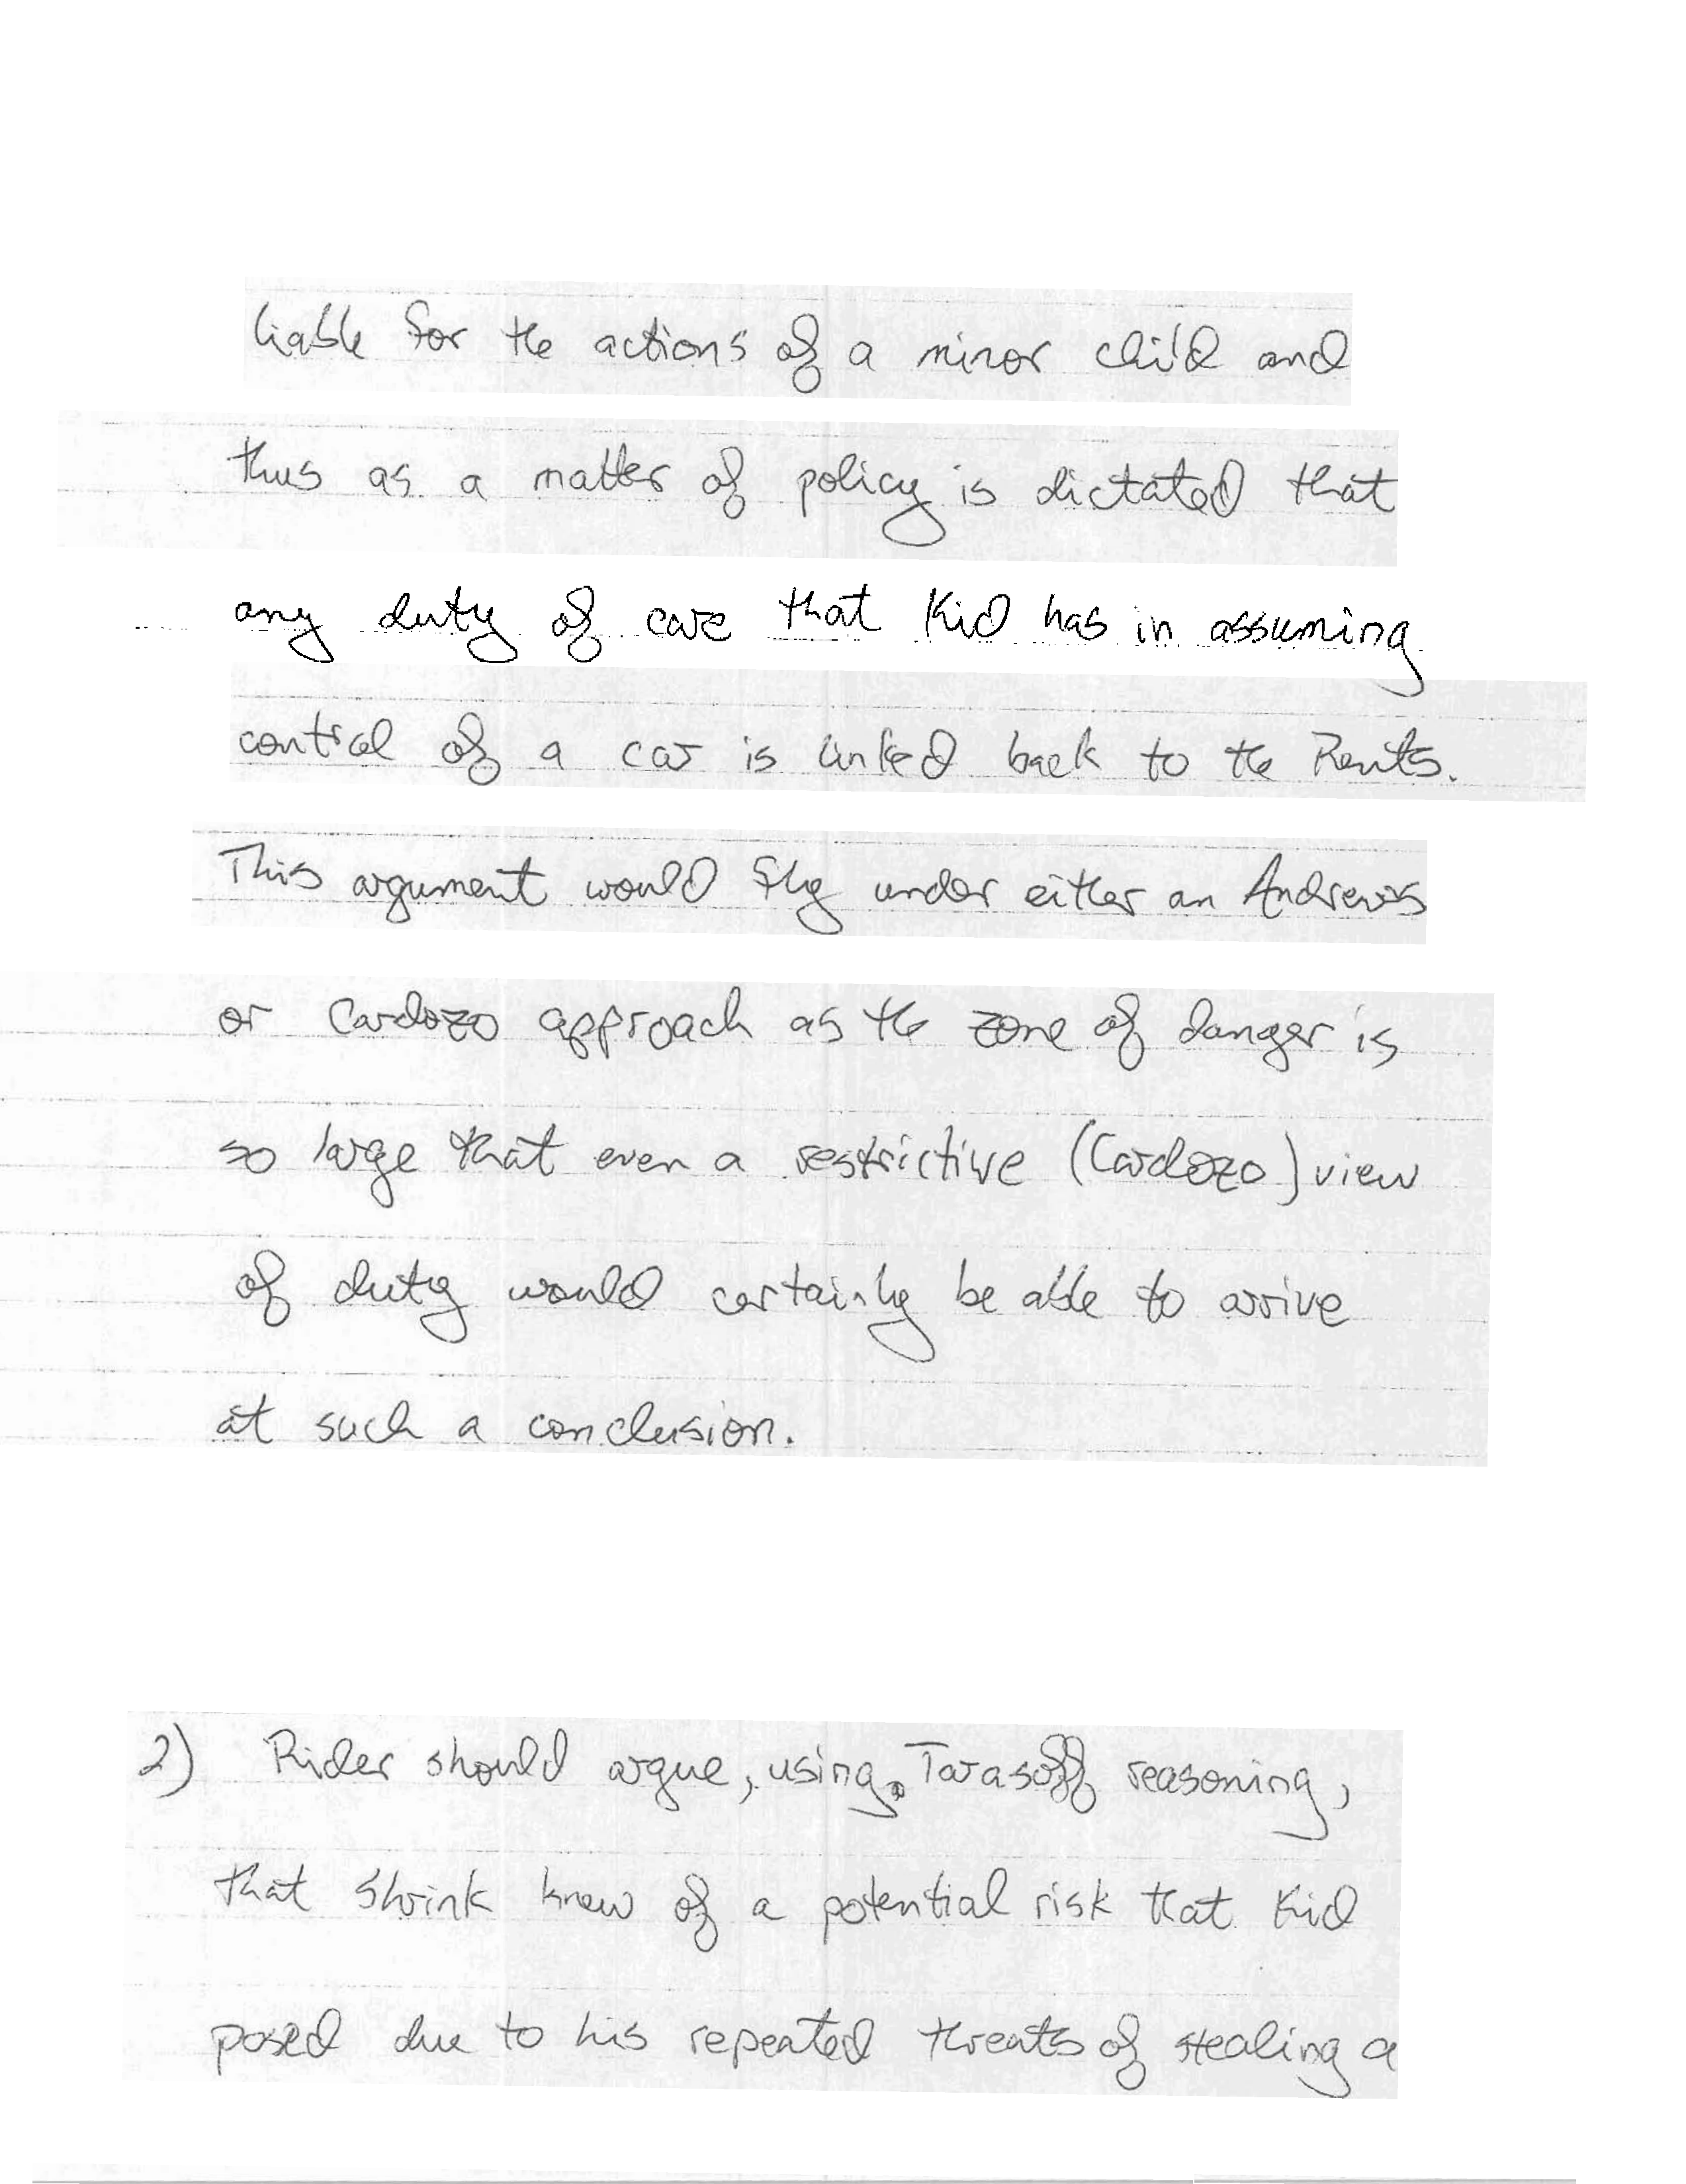 liable for the actions of a minor child and
thus as a matter of policy is dictated that
any duty of care that Kid has in assuming
control of a car is linked back to the Rents.
This argument would fly under either an Andrews
or Cardozo approach as the zone of danger is
so large that even a restrictive (Cardozo) view
of duty would certainly be able to arrive
at such a conclusion.
2) Rider should argue, using Tarasoff reasoning,
that Shrink knew of a potential risk that Kid
posed due to his repeated threats of stealing a